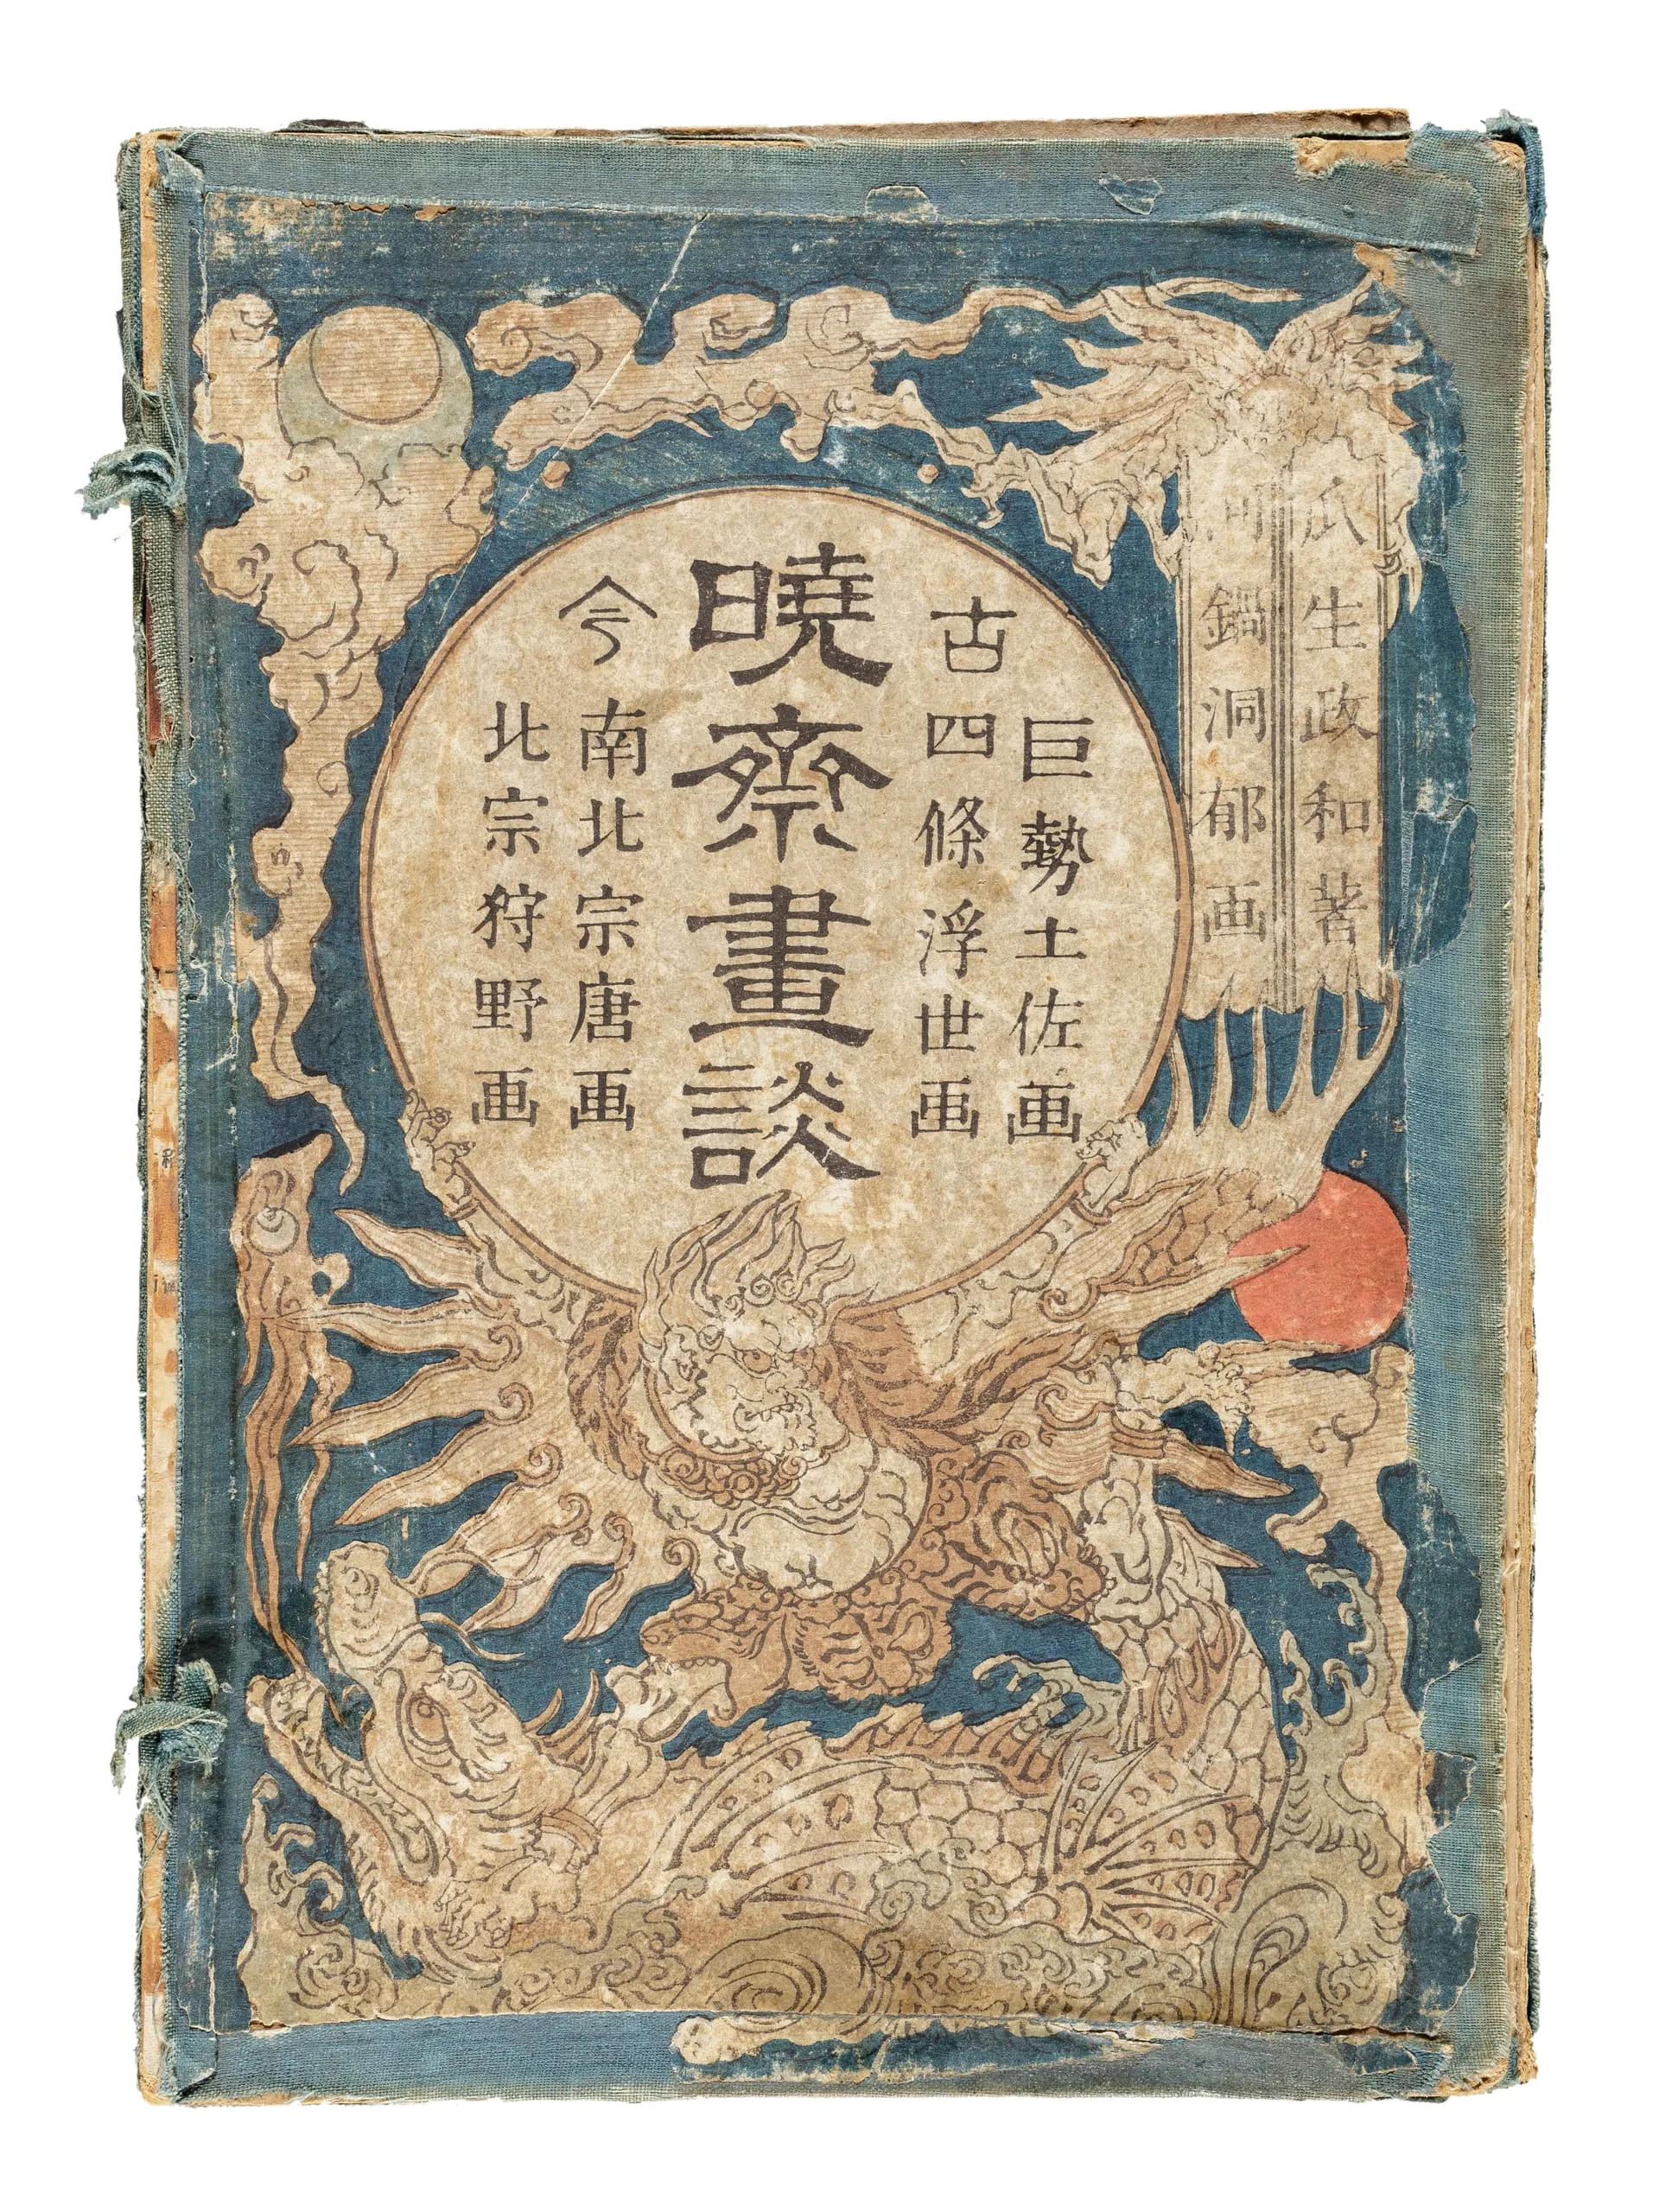 瓜生政和著
河鍋洞郁画
古
巨勢土佐画
四條浮世画
暁斎畫談
今
南北宗唐画
北宗狩野画